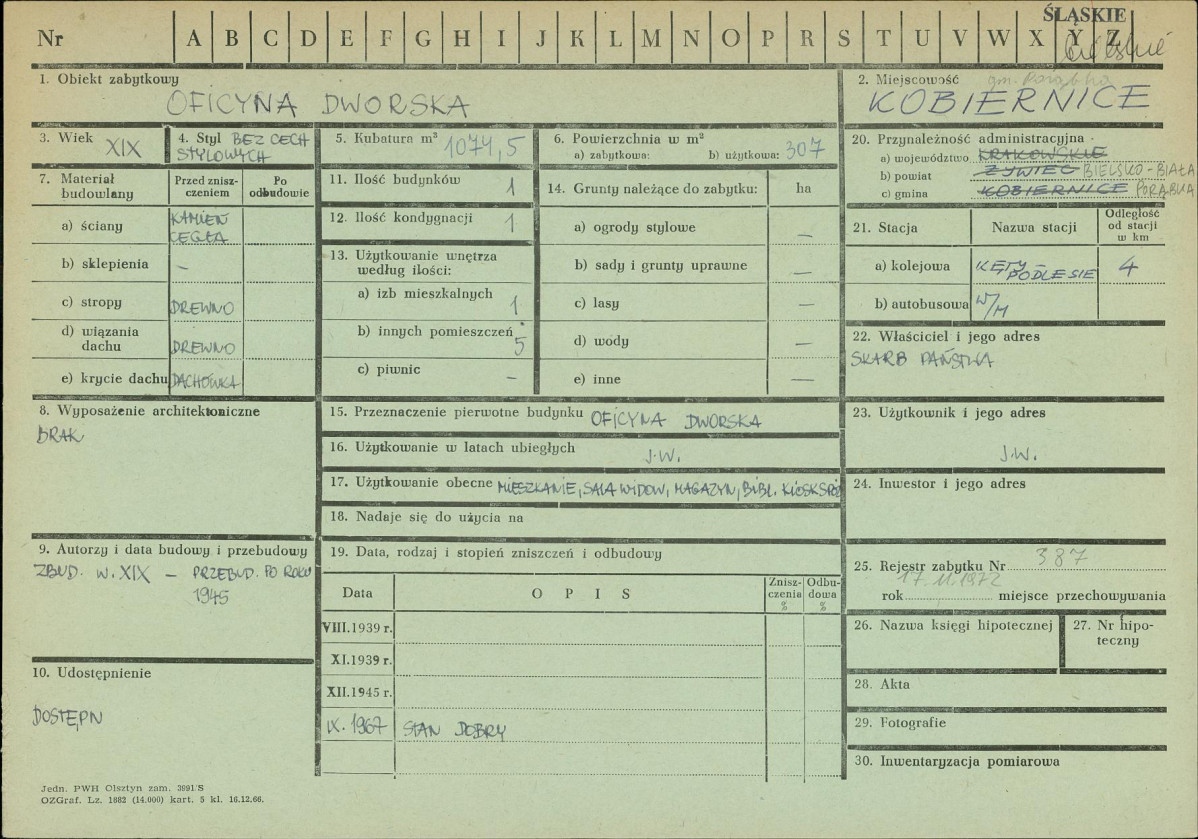 ŚLĄSKIE
Nr A B C D E F G H I J K L M N O P R S T U V W X Y Z
bielskie
1. Obiekt zabytkowy
OFICYNA DWORSKA
2. Miejscowość gm. Porąbka
KOBIERNICE
3. Wiek XIX
4. Styl BEZ CECH
STYLOWYCH
5. Kubatura m³ 1074,5
6. Powierzchnia w m²
a) zabytkowa: b) użytkowa: 307
20. Przynależność administracyjna
a) województwo KRAKOWSKIE
b) powiat ŻYWIEC BIELSKO-BIAŁA
c) gmina KOBIERNICE PORĄBKA
7. Materiał
budowlany
Przed znisz-
czeniem
Po
odbudowie
a) ściany KAMIEŃ
CEGŁA
b) sklepienia –
c) stropy DREWNO
d) wiązania
dachu DREWNO
e) krycie dachu DACHÓWKA
11. Ilość budynków 1
12. Ilość kondygnacji 1
13. Użytkowanie wnętrza
według ilości:
a) izb mieszkalnych 1
b) innych pomieszczeń 5
c) piwnic –
14. Grunty należące do zabytku: ha
a) ogrody stylowe –
b) sady i grunty uprawne –
c) lasy –
d) wody –
e) inne –
21. Stacja Nazwa stacji
Odległość
od stacji
w km
a) kolejowa KĘTY –
PODLESIE 4
b) autobusowa W/M
22. Właściciel i jego adres
SKARB PAŃSTWA
8. Wyposażenie architektoniczne
BRAK
15. Przeznaczenie pierwotne budynku OFICYNA DWORSKA
16. Użytkowanie w latach ubiegłych J.W.
17. Użytkowanie obecne MIESZKANIE, SALA WIDOW, MAGAZYN, BIBL. KIOSK SPÓŁ
18. Nadaje się do użycia na
23. Użytkownik i jego adres
J.W.
24. Inwestor i jego adres
9. Autorzy i data budowy i przebudowy
ZBUD. W. XIX – PRZEBUD. PO ROKU
1945
19. Data, rodzaj i stopień zniszczeń i odbudowy
Data O P I S
Znisz-
czenia
%
Odbu-
dowa
%
VIII.1939 r.
XI.1939 r.
XII.1945 r.
IX. 1967 STAN DOBRY
25. Rejestr zabytku Nr 387
17.11.1972
rok miejsce przechowywania
26. Nazwa księgi hipotecznej
27. Nr hipo-
teczny
10. Udostępnienie
DOSTĘPN
28. Akta
29. Fotografie
30. Inwentaryzacja pomiarowa
Jedn. PWH Olsztyn zam. 3991/S
OZGraf. Lz. 1882 (14.000) kart. 5 kl. 16.12.66.